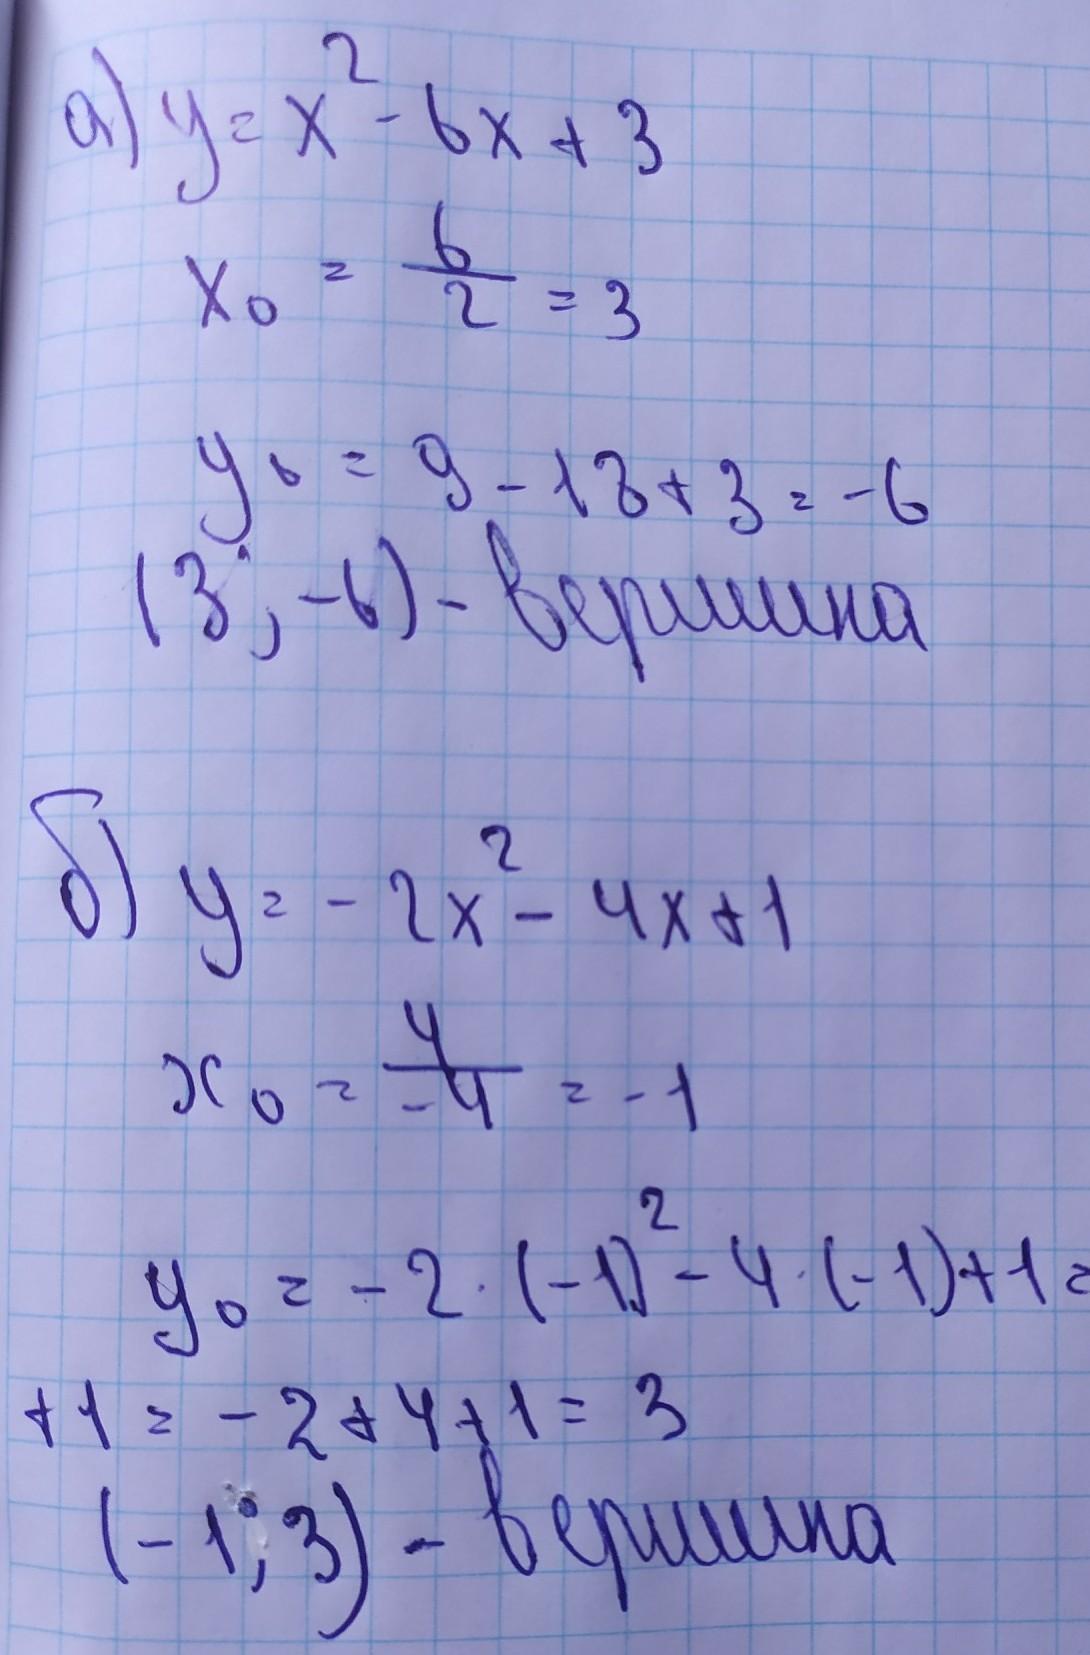 а) y = x² - 6x + 3
x₀ = 6/2 = 3
y₀ = 9 - 18 + 3 = -6
(3; -6) - вершина
б) y = -2x² - 4x + 1
x₀ = 4/-4 = -1
y₀ = -2 · (-1)² - 4 · (-1) + 1 =
+1 = -2 + 4 + 1 = 3
(-1; 3) - вершина